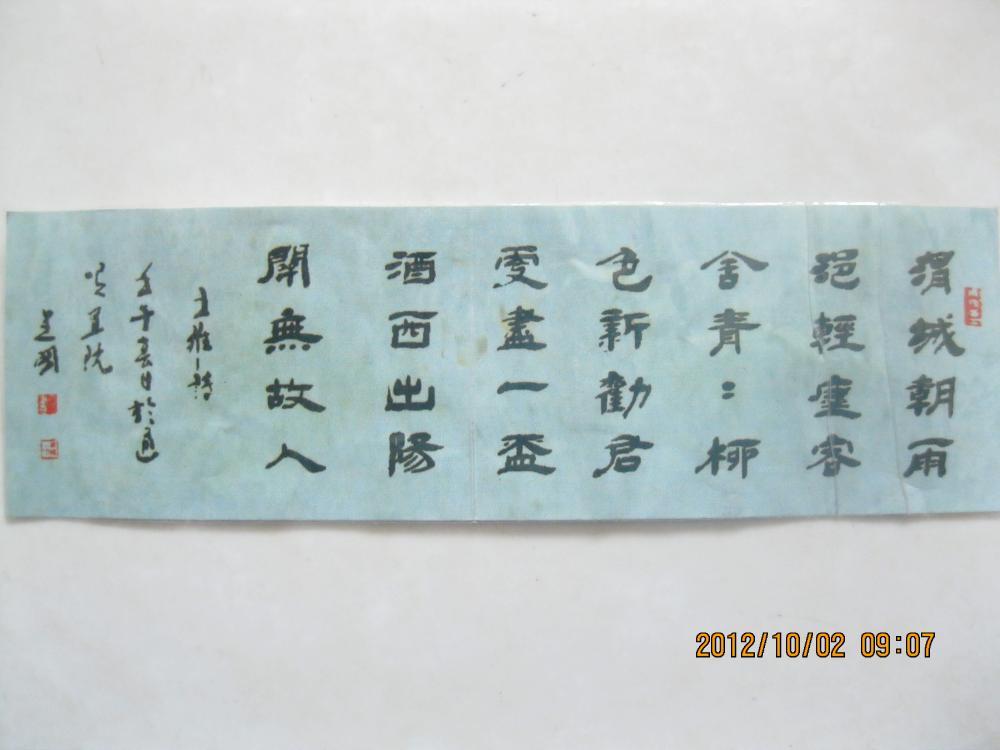 渭城朝雨
浥輕塵客
舍青：柳
色新勸君
更盡一盃
酒西出陽
關無故人
王維之詩
壬午春日於
2012/10/02 09:07